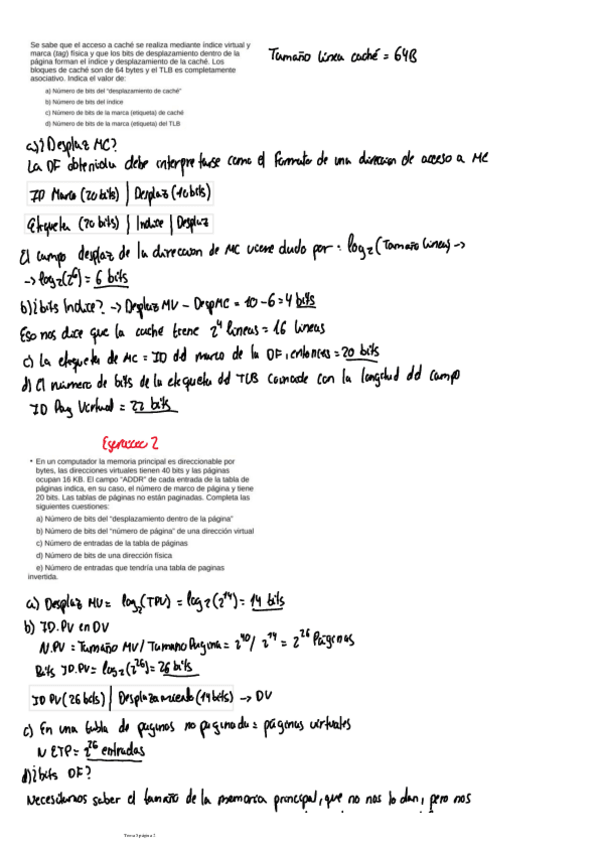 Se sabe que el acceso a caché se realiza mediante índice virtual y
marca (tag) física y que los bits de desplazamiento dentro de la
página forman el índice y desplazamiento de la caché. Los
bloques de caché son de 64 bytes y el TLB es completamente
asociativo. Indica el valor de:
Tamaño linea caché = 64B
a) Número de bits del "desplazamiento de caché"
b) Número de bits del índice
c) Número de bits de la marca (etiqueta) de caché
d) Número de bits de la marca (etiqueta) del TLB
a) ¿Desplaz MC?
La DF obtenida debe interpretarse como el formato de una direccion de acceso a MC
ID Marco (20 bits) | Desplaz (10 bits)
Etiqueta (20 bits) | Indice | Desplaz
El campo desplaz de la direccion de MC viene dado por: log₂(Tamaño linea) →
→ log₂(2⁶) = 6 bits
b) ¿bits Indice? → Desplaz MV - Desp MC = 10 - 6 = 4 bits
Eso nos dice que la caché tiene 2⁴ lineas = 16 lineas
c) La etiqueta de MC = ID del marco de la DF, entonces = 20 bits
d) El número de bits de la etiqueta del TLB coincide con la longitud del campo
ID Pag Virtual = 22 bits
Ejercicio 2
• En un computador la memoria principal es direccionable por
bytes, las direcciones virtuales tienen 40 bits y las páginas
ocupan 16 KB. El campo "ADDR" de cada entrada de la tabla de
páginas indica, en su caso, el número de marco de página y tiene
20 bits. Las tablas de páginas no están paginadas. Completa las
siguientes cuestiones:
a) Número de bits del "desplazamiento dentro de la página"
b) Número de bits del "número de página" de una dirección virtual
c) Número de entradas de la tabla de páginas
d) Número de bits de una dirección física
e) Número de entradas que tendría una tabla de paginas
invertida.
a) Desplaz MV = log₂(TPV) = log₂(2¹⁴) = 14 bits
b) ID.PV en DV
N.PV = Tamaño MV / Tamano Pagina = 2⁴⁰ / 2¹⁴ = 2²⁶ Páginas
Bits ID.PV = log₂(2²⁶) = 26 bits
ID PV (26 bits) | Desplazamiento (14 bits) → DV
c) En una tabla de paginas no paginada = páginas virtuales
N ETP = 2²⁶ entradas
d) ¿bits DF?
Necesitamos saber el tamaño de la memoria principal, que no nos lo dan, pero nos
Tema 3 página 2